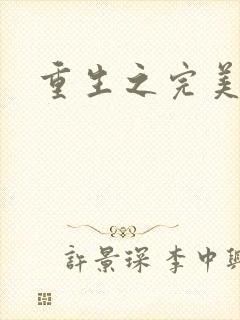 重生之完美
許景琛 李中興